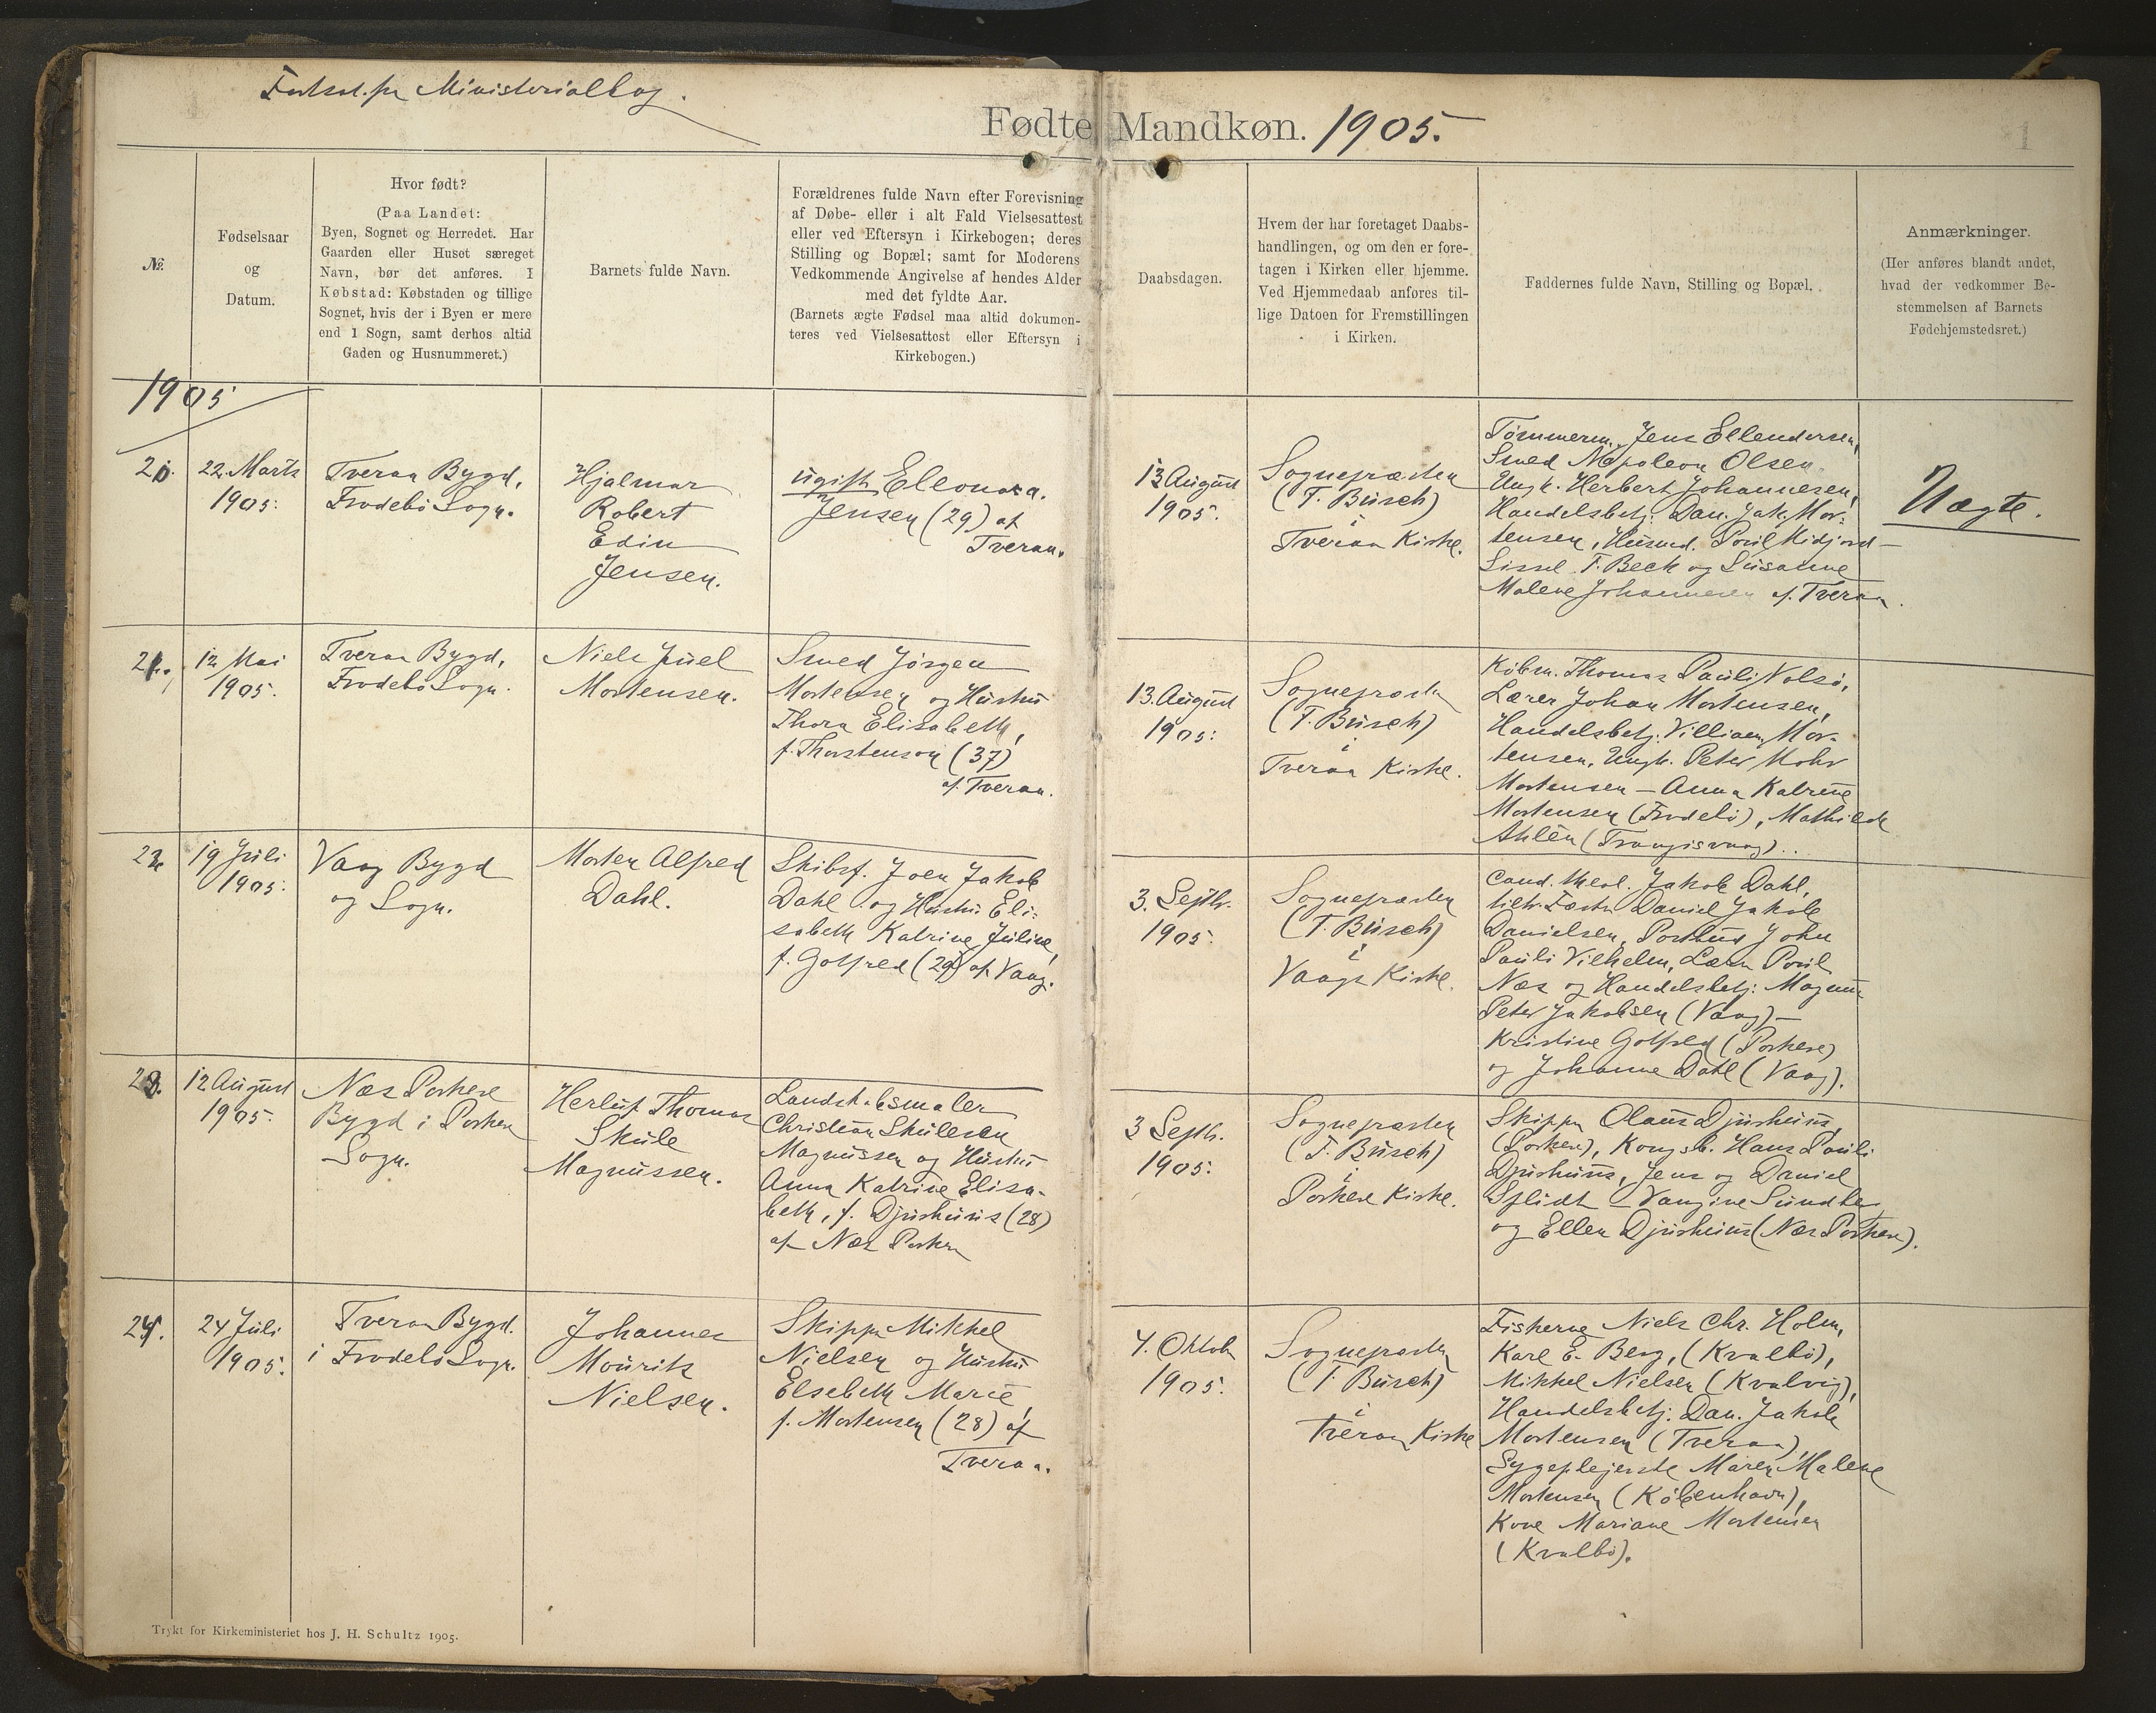 Fortsat. fra Ministerialbog.
Fødte Mandkøn. 1905.
1
№.
Fødselsaar
og
Datum.
Hvor født?
(Paa Landet:
Byen, Sognet og Herredet. Har
Gaarden eller Huset særeget
Navn, bør det anføres. I
Købstad: Købstaden og tillige
Sognet, hvis der i Byen er mere
end 1 Sogn, samt derhos altid
Gaden og Husnummeret.)
Barnets fulde Navn.
Forældrenes fulde Navn efter Forevisning
af Døbe- eller i alt Fald Vielsesattest
eller ved Eftersyn i Kirkebogen; deres
Stilling og Bopæl; samt for Moderens
Vedkommende Angivelse af hendes Alder
med det fyldte Aar.
(Barnets ægte Fødsel maa altid dokumen-
teres ved Vielsesattest eller Eftersyn i
Kirkebogen.)
Daabsdagen.
Hvem der har foretaget Daabs-
handlingen, og om den er fore-
tagen i Kirken eller hjemme.
Ved Hjemmedaab anføres til-
lige Datoen for Fremstillingen
i Kirken.
Faddernes fulde Navn, Stilling og Bopæl.
Anmærkninger.
(Her anføres blandt andet,
hvad der vedkommer Be-
stemmelsen af Barnets
Fødehjemstedsret.)
1905
20.
22. Marts
1905.
Tveraa Bygd,
Frodebø Sogn.
Hjalmar
Robert
Edin
Jensen.
ugift Eleonora
Jensen (29) af
Tveraa.
13 August
1905.
Sognepræsten
(F. Busch)
i
Tveraa Kirke.
Tømmerm. Jens Ellendersen,
Smed Napoleon Olsen,
Ungk. Herbert Johannesen,
Handelsbetj. Dan. Jak. Mor-
tensen, Husmd. Poul Midjord —
Sissel F. Beck og Susanne
Malene Johannesen af Tveraa.
Uægte.
21.
12 Mai
1905.
Tveraa Bygd,
Frodebø Sogn.
Niels Juel
Mortensen.
Smed Jørgen
Mortensen og Hustru
Thora Elisabeth,
f. Thorstenson (37)
af Tveraa.
13. August
1905.
Sognepræsten
(F. Busch)
i
Tveraa Kirke.
Købm. Thomas Pauli Nolsø,
Lærer Johan Mortensen,
Handelsbetj. Villiam Mor-
tensen, Ungk. Peter Mohr
Mortensen — Anna Katrine
Mortensen (Frodebø), Mathilde
Ahlén (Trangisvaag).
22
19 Juli
1905.
Vaag Bygd
og Sogn.
Morten Alfred
Dahl.
Skibsf. Joen Jakob
Dahl og Hustru Eli-
sabeth Katrine Juline,
f. Gotfred (29) af Vaag.
3. Septbr.
1905.
Sognepræsten
(F. Busch)
i
Vaags Kirke.
Cand. theol. Jakob Dahl,
Daniel Jakob
Danielsen, Postbud John
Pauli Vilhelm, Lærer Poul
Næs og Handelsbetj. Magnus
Peter Jakobsen (Vaag) —
Kristine Gotfred (Porkere)
og Johanne Dahl (Vaag).
23.
12 August
1905.
Næs Porkere
Bygd i Porkere
Sogn.
Herluf Thomas
Skule
Magnussen.
Landskabsmaler
Christian Skulesen
Magnussen og Hustru
Anna Katrine Elisa-
beth, f. Djurhuus (28)
af Næs Porkere
3 Septb.
1905.
Sognepræsten
(F. Busch)
i
Porkere Kirke.
Skipper Olaus Djurhuus,
(Porkere), Kongsb. Hans Pauli
Djurhuus, Jens og Daniel
Splidt — Vangine Sundbe
og Ellen Djurhuus (Næs Porkere).
24.
24 Juli
1905.
Tveraa Bygd.
i Frodebø Sogn.
Johannes
Mourits
Nielsen.
Skipper Mikkel
Nielsen og Hustru
Elsebeth Marie,
f. Mortensen (28) af
Tveraa.
4. Oktob
1905.
Sognepræsten
(F. Busch)
i
Tveraa Kirke
Fiskerne Niels Chr. Holm,
Karl E. Berg, (Kvalbø),
Mikkel Nielsen (Kvalvig),
Handelsbetj. Dan. Jakob
Mortensen (Tveraa),
Sygeplejerske Maren Malene
Mortensen (København),
Kone Mariane Mortensen
(Kvalbø).
Trykt for Kirkeministeriet hos J. H. Schultz 1905.